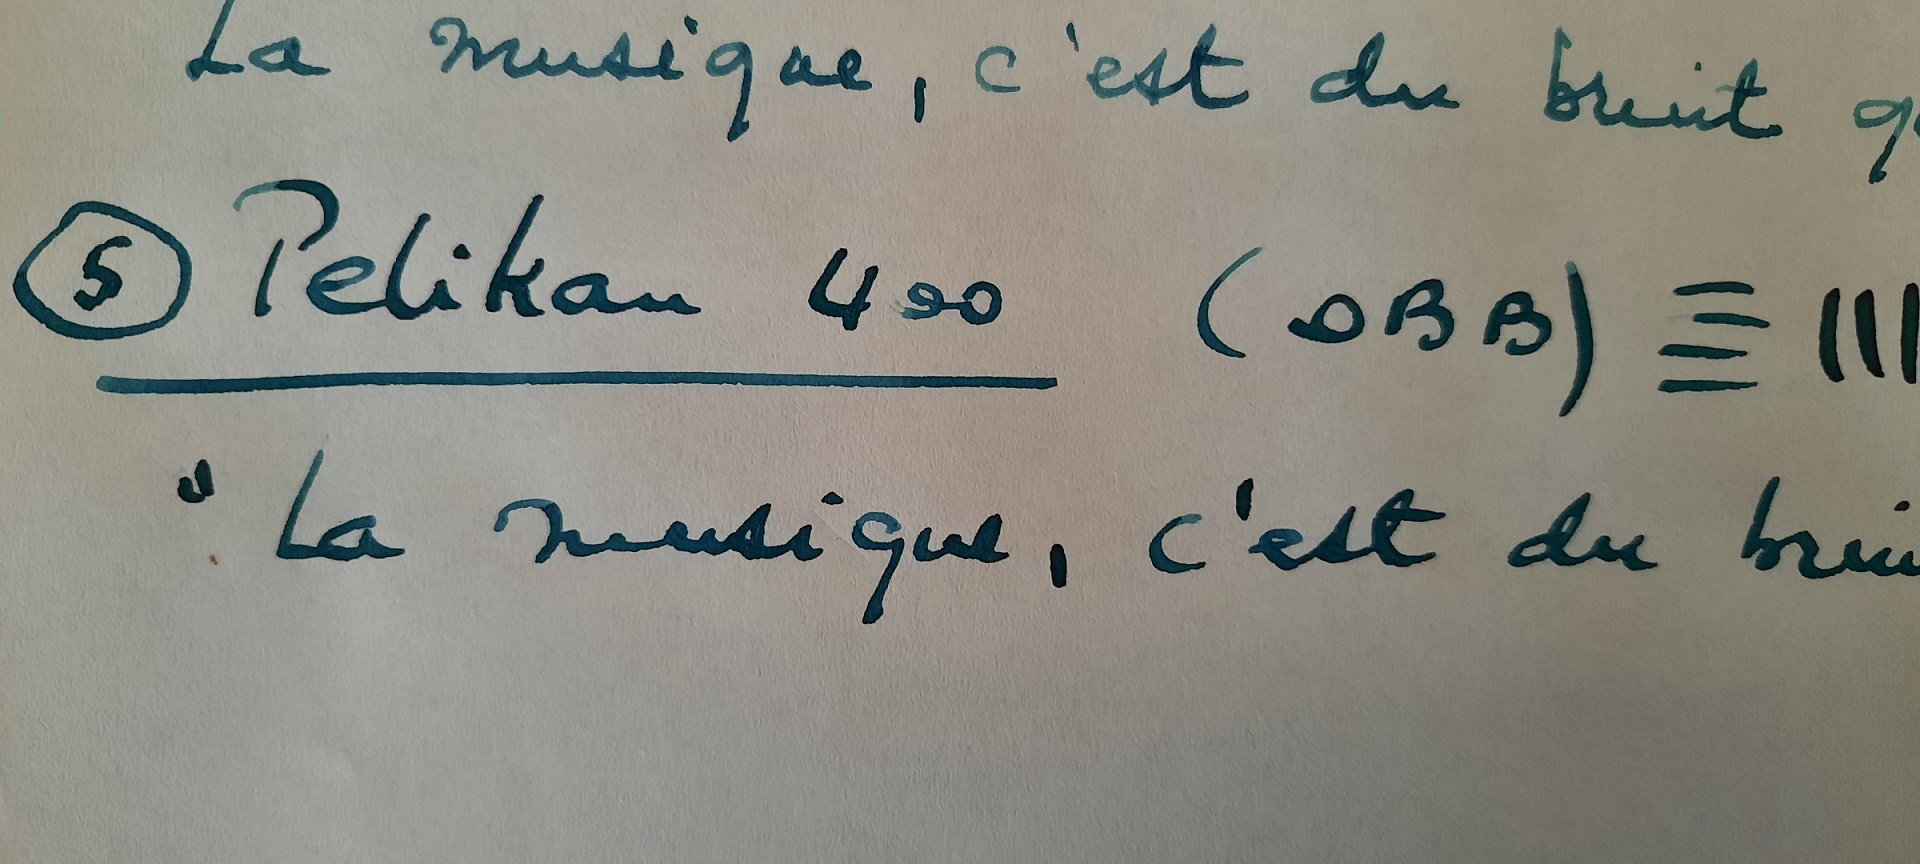 La musique, c'est du bruit q
⑤ Pelikan 400 (OBB) ≡ |||
"La musique, c'est du brui